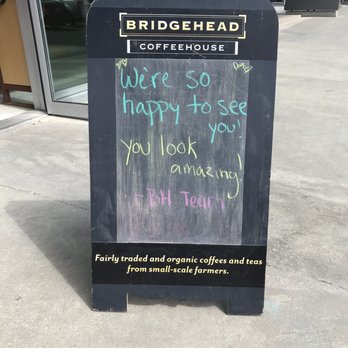 BRIDGEHEAD
COFFEEHOUSE
We're so
happy to see
you!
you look
amazing!
- BH Team
Fairly traded and organic coffees and teas
from small-scale farmers.